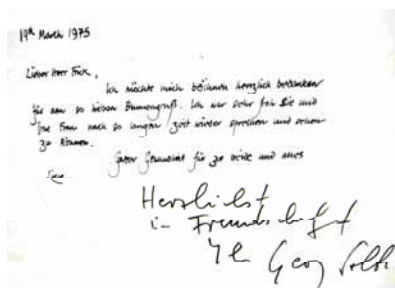 19th March 1975
Lieber Herr Frick,
Ich möchte mich bei Ihnen herzlich bedanken
für den so lieben Blumengruß. Ich war sehr froh Sie und
Ihre Frau nach so langer Zeit wieder sprechen und sehen
zu können.
Guter Gesundheit für Sie beide und alles
Liebe.
Herzlichst
in Freundschaft
Ihr Georg Solti